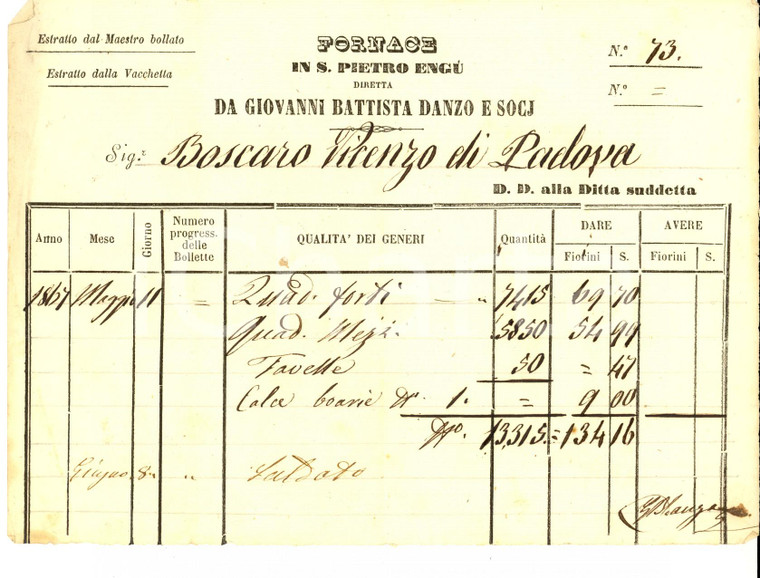 Estratto dal Maestro bollato
Estratto dalla Vacchetta
FORNACE
IN S. PIETRO ENGÙ
DIRETTA
DA GIOVANNI BATTISTA DANZO E SOCJ
N.º 73.
N.º =
Sig.r Boscaro Vicenzo di Padova
D. D. alla Ditta suddetta
Anno Mese Giorno Numero progress. delle Bollette QUALITA' DEI GENERI Quantità DARE Fiorini S. AVERE Fiorini S.
1867 Maggio 11 = Quad. forti = " 7415 69 70
Quad. Mezi. 5850 54 99
Tavelle 50 = 47
Calce boarie N.º 1. = 9 00
N.º 13315 = 134 16
Giugno 8 " Saldato